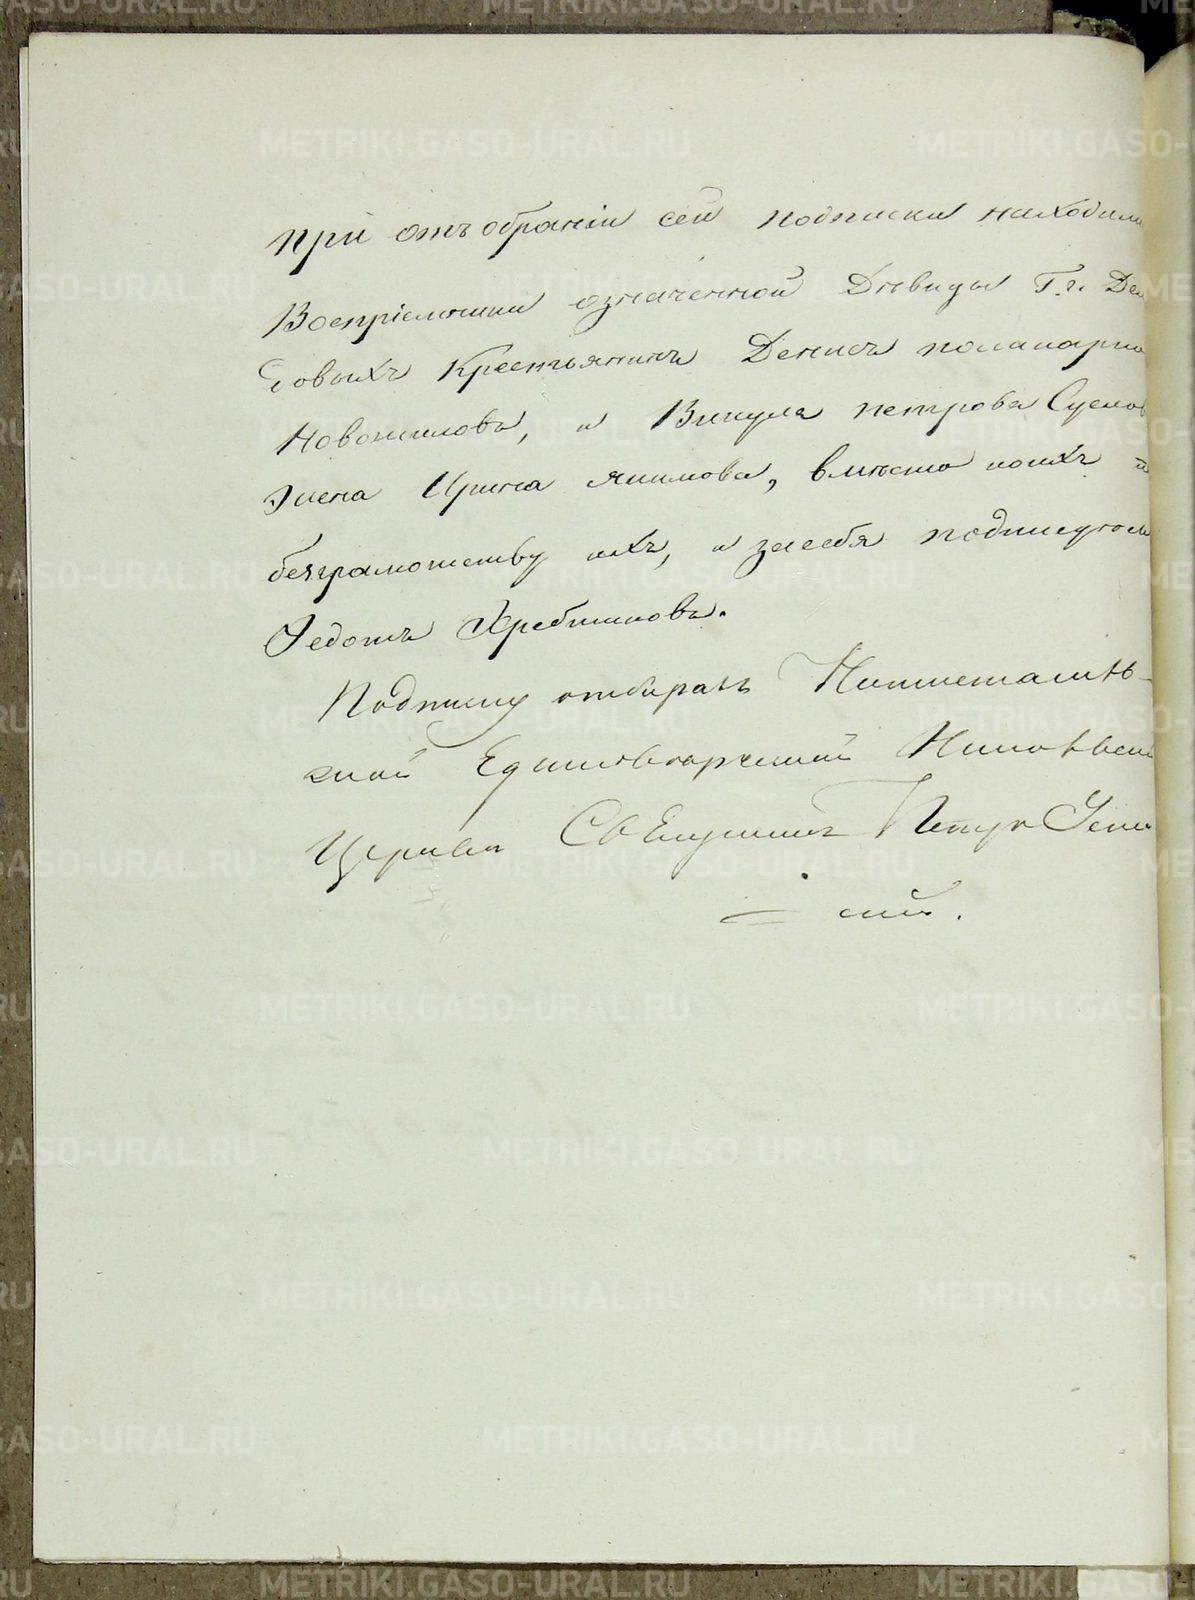 при отъобраніи сей подписки находили
Воспріемники означенной Дѣвицы Г.г. Де
довыхъ Крестьянинъ Денисъ поликарпо
Новожиловъ, и Викула петрова Суслов
Жена Ирина якимова, вместо коихъ
безграмотству ихъ, и засебя подписуюсь
Федотъ Хребтиковъ.
Подписку отбиралъ
Единоверческой Николаевск
Церкви Священникъ Петръ
скій.
METRIKI.GASO-URAL.RU